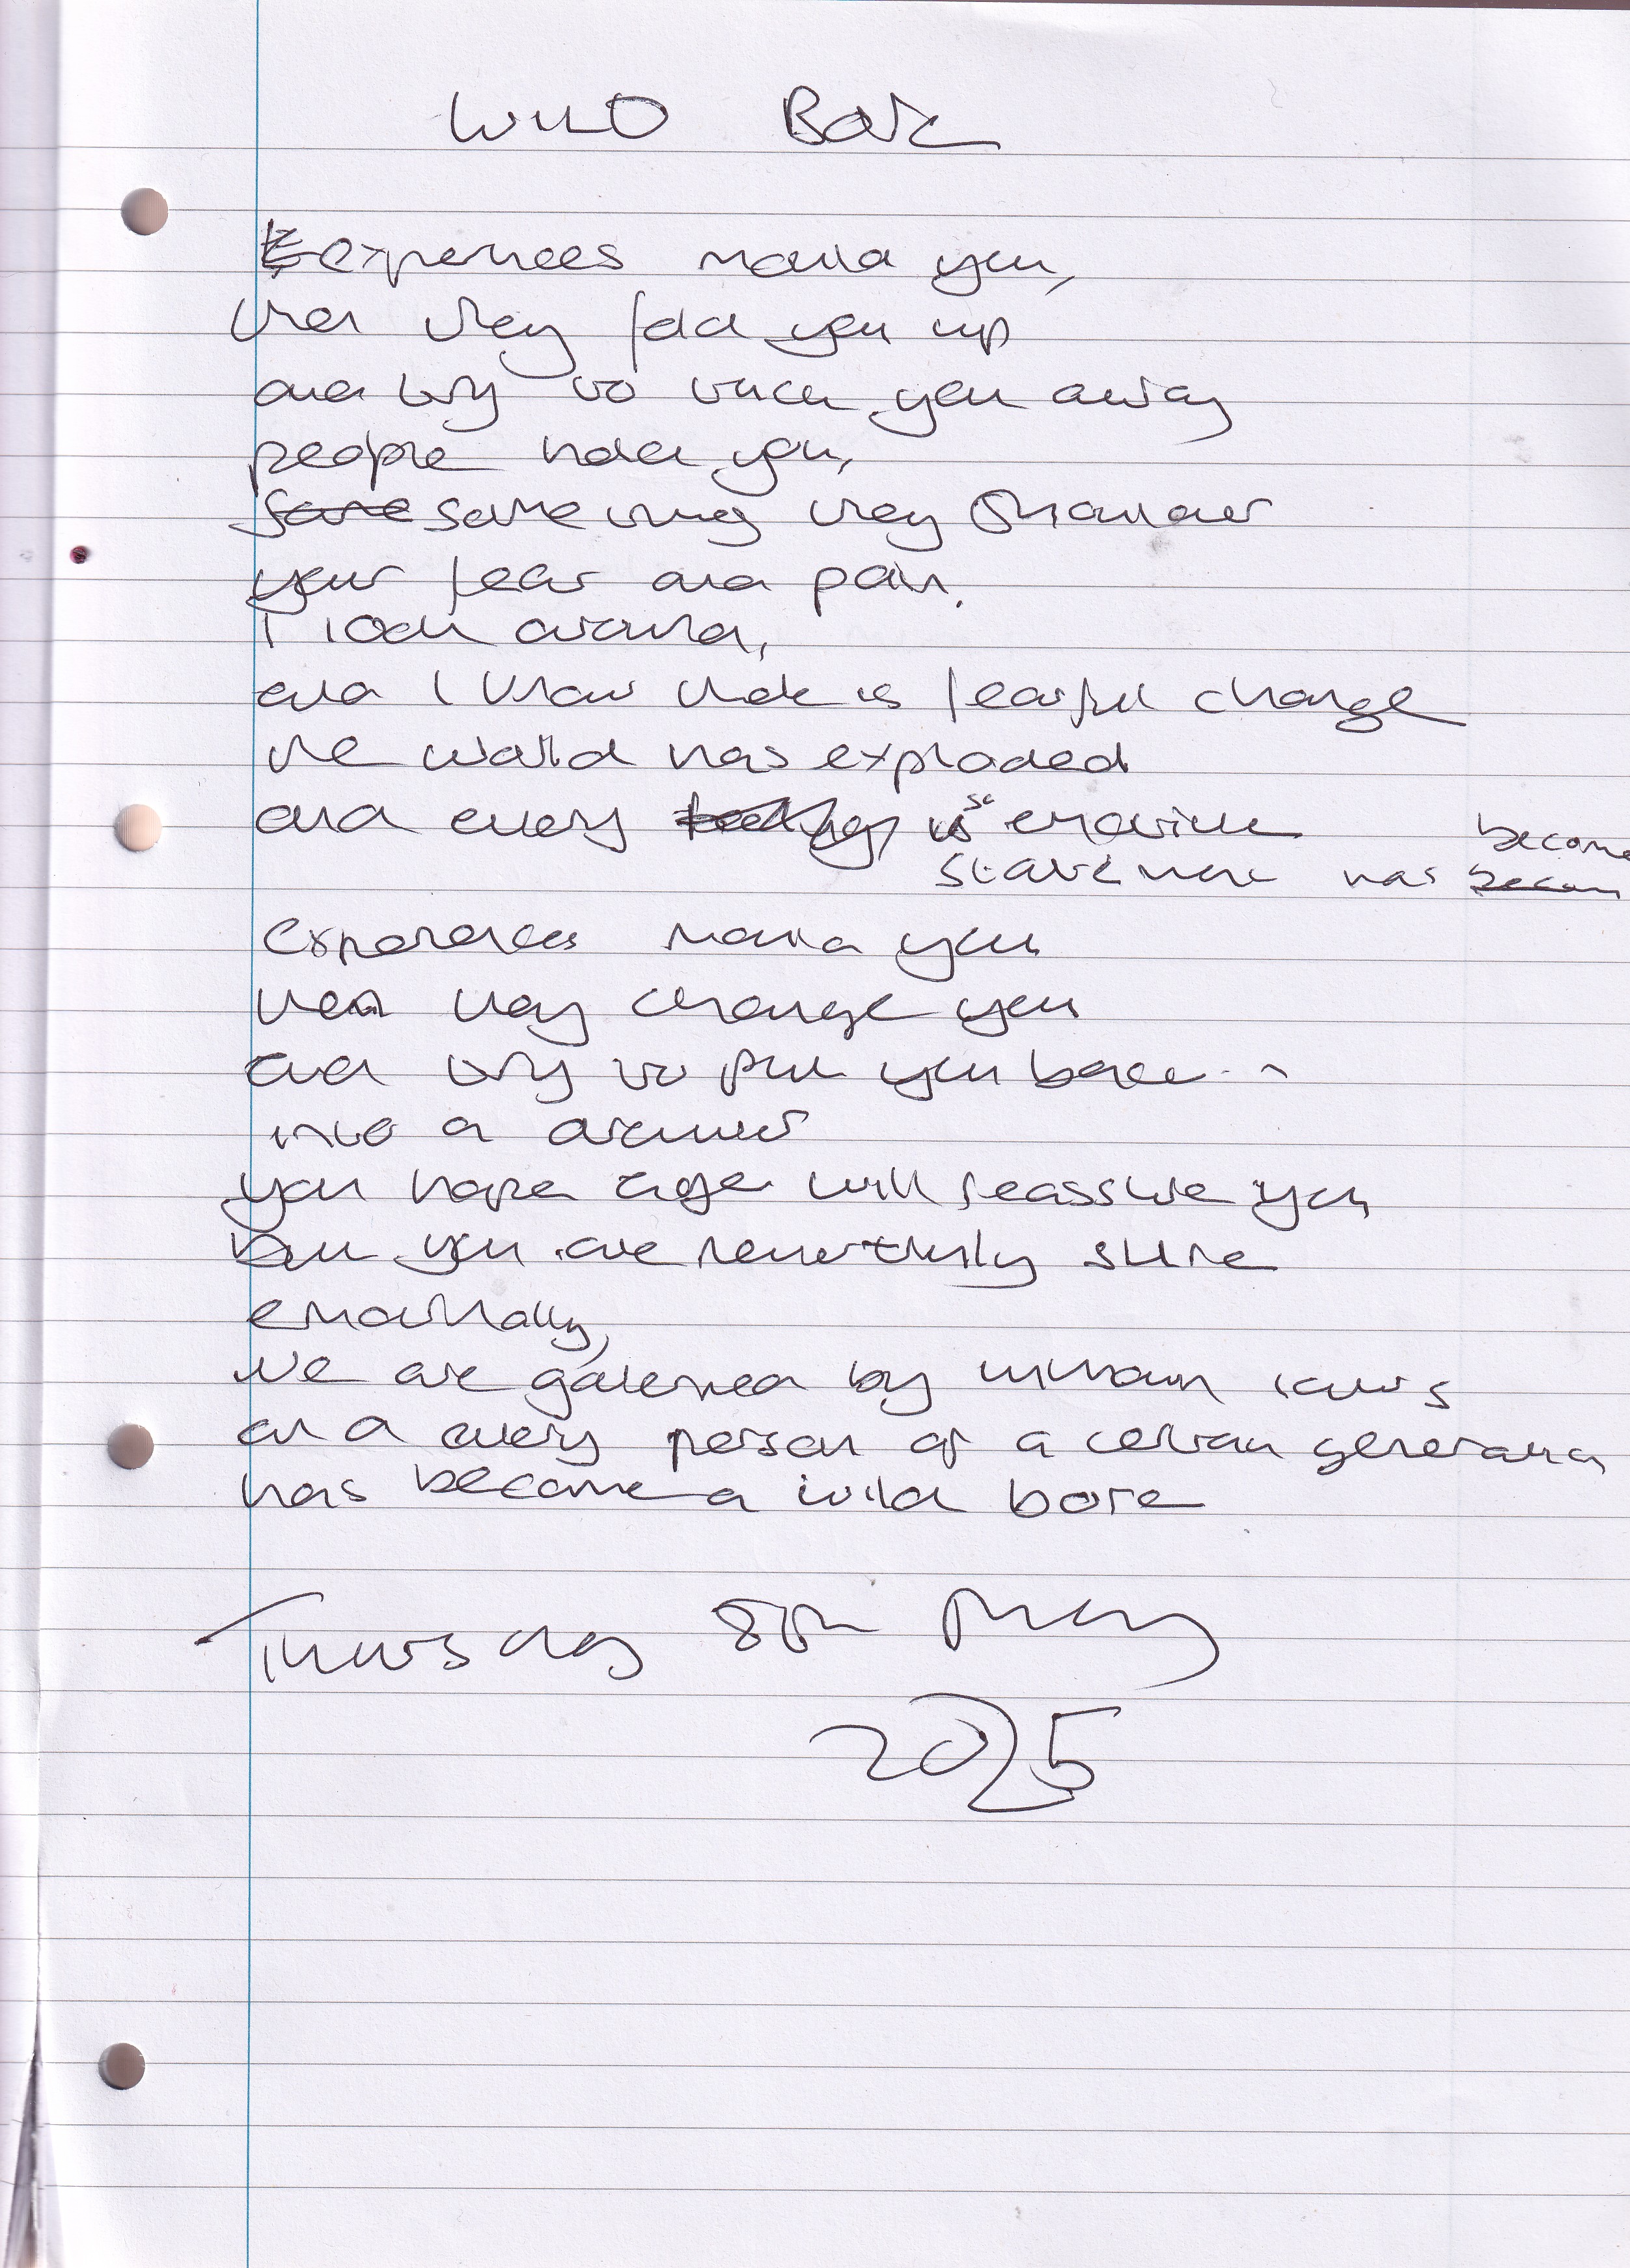 WILD BORE
experiences mould you,
then they fold you up
and try to tuck you away
people need you,
some some thing they shoulder
your fear and pain.
I look around,
and I know there is fearful change
the world has exploded
and every is emotive
statement has become
experiences mould you
then they change you
and try to put you back
into a drawer
you hope age will reassure you
but you are sure
emotionally,
we are governed by unknown laws
and every person of a certain generation
has become a wild bore
Thursday 8th May
2025